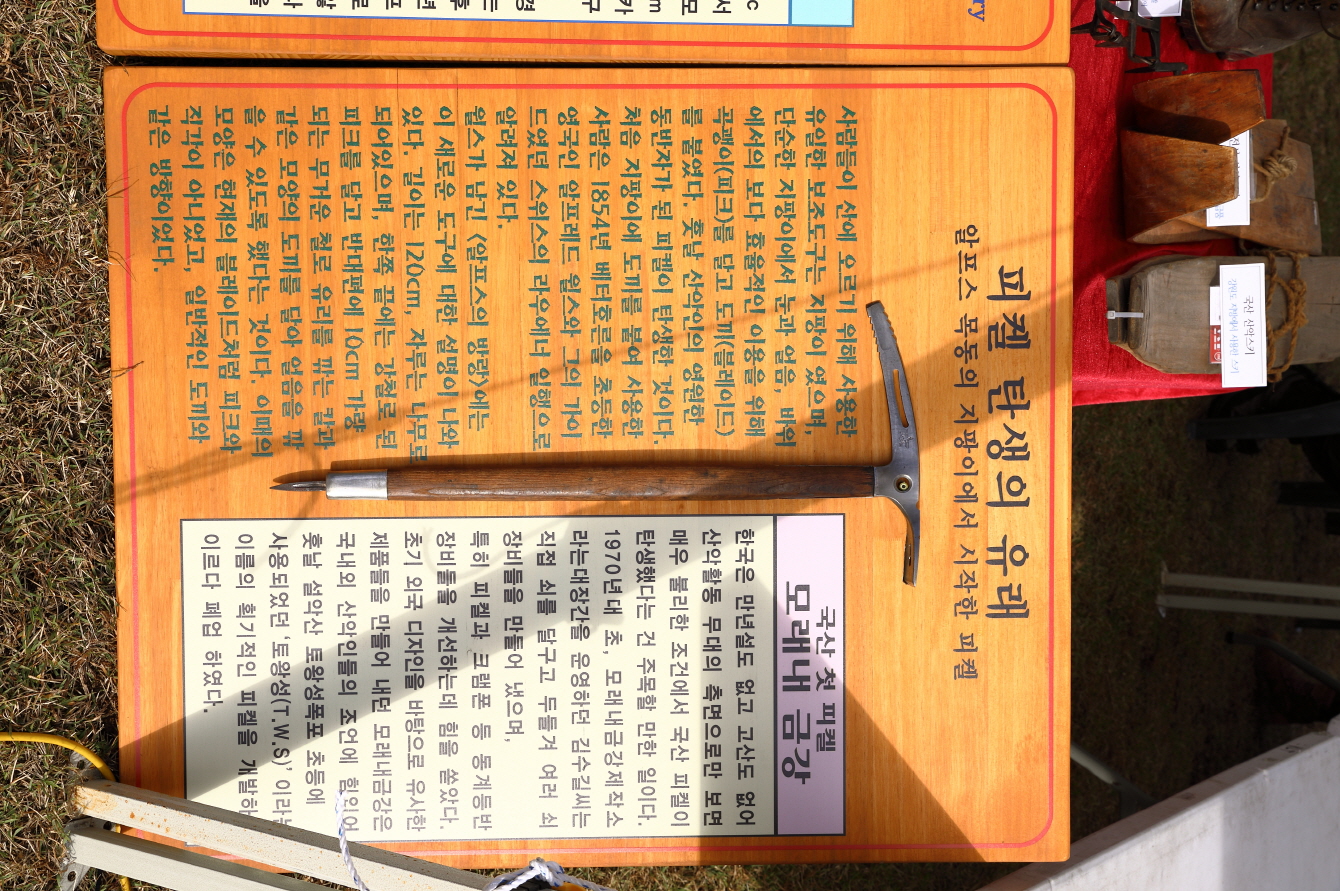 피켈 탄생의 유래
알프스 목동의 지팡이에서 시작한 피켈
사람들이 산에 오르기 위해 사용한
유일한 보조도구는 지팡이 였으며,
단순한 지팡이에서 눈과 얼음, 바위
에서의 보다 효율적인 이용을 위해
곡괭이(피크)를 달고 도끼(블레이드)
를 붙였다. 훗날 산악인의 영원한
동반자가 된 피켈이 탄생한 것이다.
처음 지팡이에 도끼를 붙여 사용한
사람은 1854년 베터호른을 초등한
영국인 알프레드 윌스와 그의 가이
드였던 스위스의 라우에나 일행으로
알려져 있다.
윌스가 남긴 <알프스의 방랑>에는
이 새로운 도구에 대한 설명이 나와
있다. 길이는 120cm, 자루는 나무로
되어있으며, 한쪽 끝에는 강철로 된
피크를 달고 반대편에 10cm 가량
되는 무거운 철로 유리를 깎는 칼과
같은 모양의 도끼를 달아 얼음을 깎
을 수 있도록 했다는 것이다. 이때의
모양은 현재의 블레이드처럼 피크와
직각이 아니었고, 일반적인 도끼와
같은 방향이었다.
국산 첫 피켈
모래내 금강
한국은 만년설도 없고 고산도 없어
산악활동 무대의 측면으로만 보면
매우 불리한 조건에서 국산 피켈이
탄생했다는 건 주목할 만한 일이다.
1970년대 초, 모래내금강제작소
라는대장간을 운영하던 김수길씨는
직접 쇠를 달구고 두들겨 여러 쇠
장비들을 만들어 냈으며,
특히 피켈과 크램폰 등 동계등반
장비들을 개선하는데 힘을 쏟았다.
초기 외국 디자인을 바탕으로 유사한
제품들을 만들어 내던 모래내금강은
국내외 산악인들의 조언에 힘입어
훗날 설악산 토왕성폭포 초등에
사용되었던 '토왕성(T.W.S)' 이라는
이름의 획기적인 피켈을 개발하
이르다 폐업 하였다.
국산 산악스키